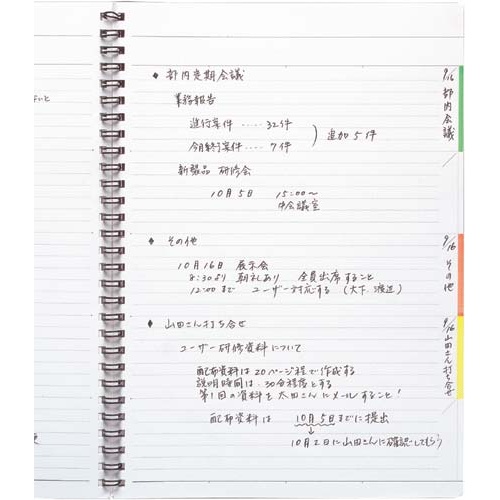 ◆ 部内定期会議
業務報告
進行案件 ‥‥ 32件
今月終了案件 ‥‥ 7件
追加5件
新製品 研修会
10月5日 15:00〜
中会議室
◆ その他
10月16日 展示会
8:30より 朝礼あり 全員出席すること
12:00まで ユーザー対応する (大下、渡辺)
◆ 山田さん打ち合せ
ユーザー研修資料について
配布資料は20ページ程で作成する
説明時間は、30分程度とする
第1回の資料を太田さんにメールすること!
配布資料は 10月5日までに提出
10月2日に山田さんに確認してもらう
9/16 部内会議
9/16 その他
9/16 山田さん打ち合せ